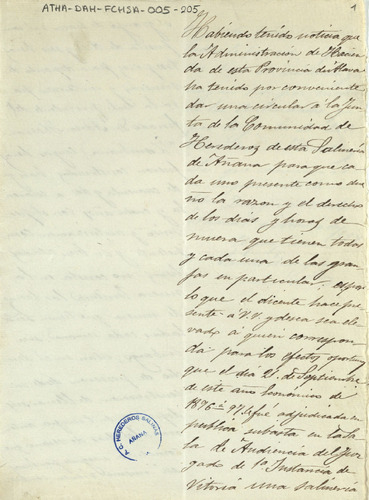 ATHA-DAH-FCHSA-005-205
1
Habiendo tenido noticia que
la Administracion de Hacien
da de esta Provincia de Alava
ha tenido por conveniente
dar una circular á la Jun
ta de la Comunidad de
Herederos de esta Salinería
de Añana para que ca
da uno presente como due
ño la razon y el derecho
de los dias y horas de
muera que tienen todas
y cada una de las gran
jas en particular: es por
lo que el dicente hace pre
sente á V.V. y desea sea ele
vado á quien correspon
da para los efectos oportunos
que el dia 21 de Septiembre
de este año económico de
1876 á 77 fue adjudicada en
publica subasta en la Sa
la de Audiencia del Juz
gado de 1ª Instancia de
Vitoria una salinería
HEREDEROS SALINAS
AÑANA